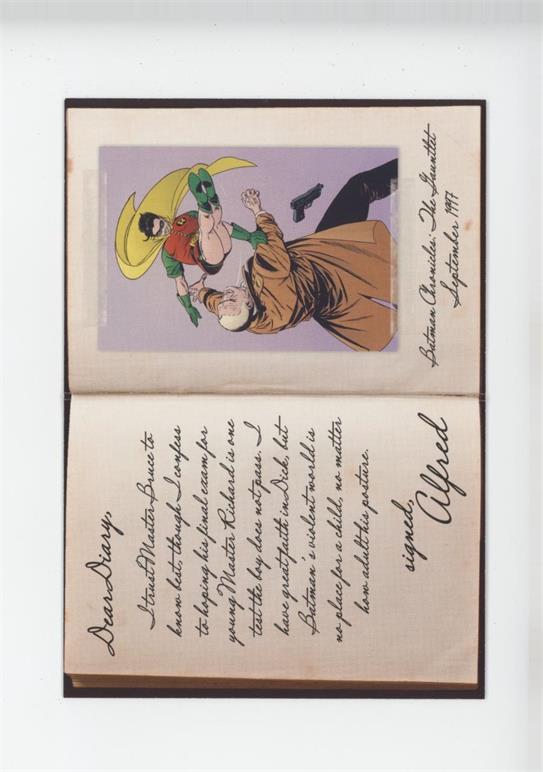 Dear Diary,
I trust Master Bruce to
know best, though I confess
to hoping his final exam for
young Master Richard is one
test the boy does not pass. I
have great faith in Dick, but
Batman's violent world is
no place for a child, no matter
how adult his posture.
signed,
Alfred
Batman Chronicles: The Gauntlet
September 1997